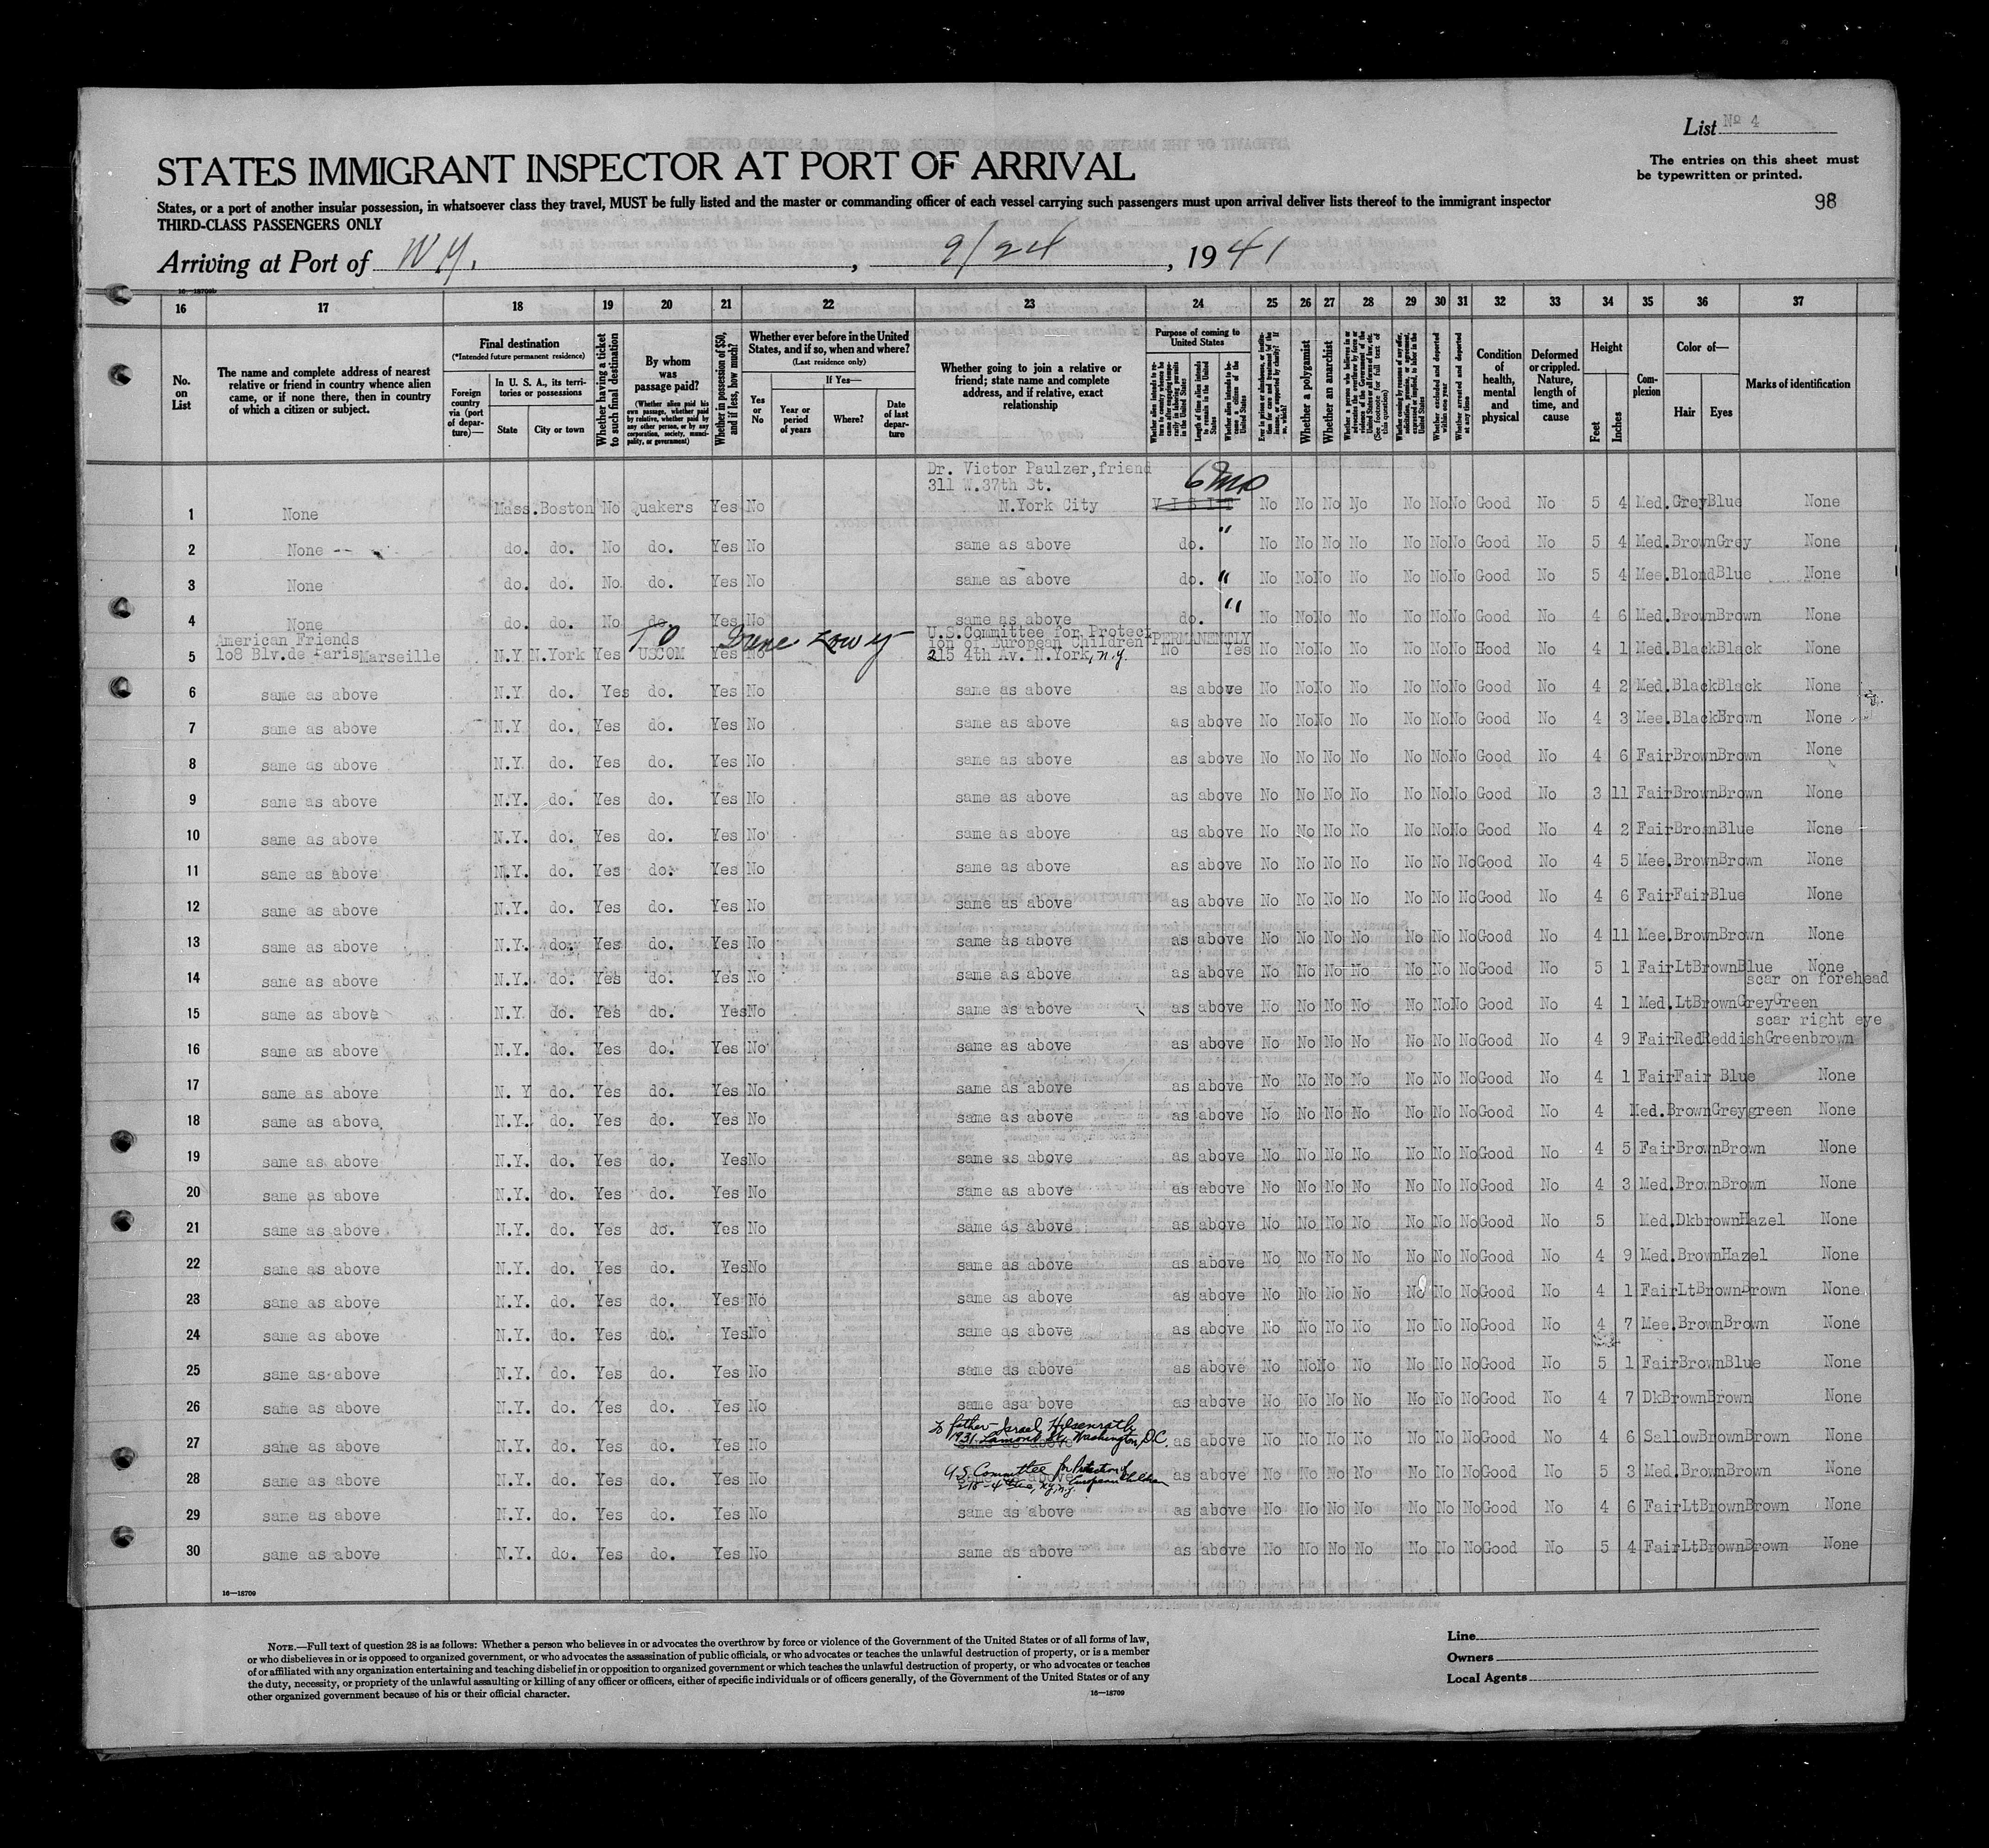 List Nº 4
STATES IMMIGRANT INSPECTOR AT PORT OF ARRIVAL
The entries on this sheet must
be typewritten or printed.
States, or a port of another insular possession, in whatsoever class they travel, MUST be fully listed and the master or commanding officer of each vessel carrying such passengers must upon arrival deliver lists thereof to the immigrant inspector
98
THIRD-CLASS PASSENGERS ONLY
Arriving at Port of N.Y. , 9/24 , 1941
16 17 18 19 20 21 22 23 24 25 26 27 28 29 30 31 32 33 34 35 36 37
No. on List
The name and complete address of nearest relative or friend in country whence alien came, or if none there, then in country of which a citizen or subject.
Final destination
(*Intended future permanent residence)
Foreign country via (port of departure)—
In U. S. A., its territories or possessions
State
City or town
Whether having a ticket to such final destination
By whom was passage paid?
(Whether alien paid his own passage, whether paid by relative, whether paid by any other person, or by any corporation, society, municipality, or government)
Whether in possession of $50, and if less, how much?
Whether ever before in the United States, and if so, when and where?
(Last residence only)
Yes or No
If Yes—
Year or period of years
Where?
Date of last departure
Whether going to join a relative or friend; state name and complete address, and if relative, exact relationship
Purpose of coming to United States
Length of time alien intends to remain in the United States
Whether a polygamist
Whether an anarchist
Whether excluded and deported within one year
Whether arrested and deported at any time
Condition of health, mental and physical
Deformed or crippled. Nature, length of time, and cause
Height
Feet
Inches
Complexion
Color of—
Hair
Eyes
Marks of identification
Dr. Victor Paulzer, friend
311 W.37th St. 6 mo
1 None Mass. Boston No Quakers Yes No N.York City VISIT No No No No No No No Good No 5 4 Med. Grey Blue None
2 None -- do. do. No do. Yes No same as above do. " No No No No No No No Good No 5 4 Med. Brown Grey None
3 None do. do. No. do. Yes No same as above do. " No No No No No No No Good No 5 4 Mee. Blond Blue None
4 None do. do. No do. Yes No same as above do. " No No No No No No No Good No 4 6 Med. Brown Brown None
American Friends TO Irene Lowey U.S.Committee for Protect- PERMANENTLY
5 108 Blv.de Paris Marseille N.Y N.York Yes USCOM Yes No ion of European Children No Yes No No No No No No No Good No 4 1 Med. Black Black None
215 4th Av. N.York, N.Y.
6 same as above N.Y do. Yes do. Yes No same as above as above No No No No No No No Good No 4 2 Med. Black Black None
7 same as above N.Y do. Yes do. Yes No same as above as above No No No No No No No Good No 4 3 Mee. Black Brown None
8 same as above N.Y. do. Yes do. Yes No same as above as above No No No No No No No Good No 4 6 Fair Brown Brown None
9 same as above N.Y. do. Yes do. Yes No same as above as above No No No No No No No Good No 3 11 Fair Brown Brown None
10 same as above N.Y. do. Yes do. Yes No same as above as above No No No No No No No Good No 4 2 Fair Brown Blue None
11 same as above N.Y. do. Yes do. Yes No same as above as above No No No No No No No Good No 4 5 Mee. Brown Brown None
12 same as above N.Y. do. Yes do. Yes No same as above as above No No No No No No No Good No 4 6 Fair Fair Blue None
13 same as above N.Y. do. Yes do. Yes No same as above as above No No No No No No No Good No 4 11 Mee. Brown Brown None
14 same as above N.Y. do. Yes do. Yes No same as above as above No No No No No No No Good No 5 1 Fair LtBrown Blue None
scar on forehead
15 same as above N.Y. do. Yes do. Yes No same as above as above No No No No No No No Good No 4 1 Med. LtBrown GreyGreen
scar right eye
16 same as above N.Y. do. Yes do. Yes No same as above as above No No No No No No No Good No 4 9 Fair RedReddish Greenbrown
17 same as above N. Y do. Yes do. Yes No same as above as above No No No No No No No Good No 4 1 Fair Fair Blue None
18 same as above N.Y. do. Yes do. Yes No same as above as above No No No No No No No Good No 4 Med. Brown Greygreen None
19 same as above N.Y. do. Yes do. Yes No same as above as above No No No No No No No Good No 4 5 Fair Brown Brown None
20 same as above N.Y. do. Yes do. Yes No same as above as above No No No No No No No Good No 4 3 Med. Brown Brown None
21 same as above N.Y. do. Yes do. Yes No same as above as above No No No No No No No Good No 5 Med. Dkbrown Hazel None
22 same as above N.Y. do. Yes do. Yes No same as above as above No No No No No No No Good No 4 9 Med. Brown Hazel None
23 same as above N.Y. do. Yes do. Yes No same as above as above No No No No No No No Good No 4 1 Fair LtBrown Brown None
24 same as above N.Y. do. Yes do. Yes No same as above as above No No No No No No No Good No 4 7 Mee. Brown Brown None
25 same as above N.Y. do. Yes do. Yes No same as above as above No No No No No No No Good No 5 1 Fair Brown Blue None
26 same as above N.Y. do. Yes do. Yes No same asa bove as above No No No No No No No Good No 4 7 Dk Brown Brown None
to father - Israel Hilsenrath,
1931 Lamond St., Washington, D.C.
27 same as above N.Y. do. Yes do. Yes No same as above as above No No No No No No No Good No 4 6 Sallow Brown Brown None
U.S. Committee for Protection of European Children
28 same as above N.Y. do. Yes do. Yes No same as above as above No No No No No No No Good No 5 3 Med. Brown Brown None
215 - 4th Ave, N.Y., N.Y.
29 same as above N.Y. do. Yes do. Yes No same as above as above No No No No No No No Good No 4 6 Fair LtBrown Brown None
30 same as above N.Y. do. Yes do. Yes No same as above as above No No No No No No No Good No 5 4 Fair LtBrown Brown None
16—18709
NOTE.—Full text of question 28 is as follows: Whether a person who believes in or advocates the overthrow by force or violence of the Government of the United States or of all forms of law,
or who disbelieves in or is opposed to organized government, or who advocates the assassination of public officials, or who advocates or teaches the unlawful destruction of property, or is a member
of or affiliated with any organization entertaining and teaching disbelief in or opposition to organized government or which teaches the unlawful destruction of property, or who advocates or teaches
the duty, necessity, or propriety of the unlawful assaulting or killing of any officer or officers, either of specific individuals or of officers generally, of the Government of the United States or of any
other organized government because of his or their official character.
16—18709
Line
Owners
Local Agents